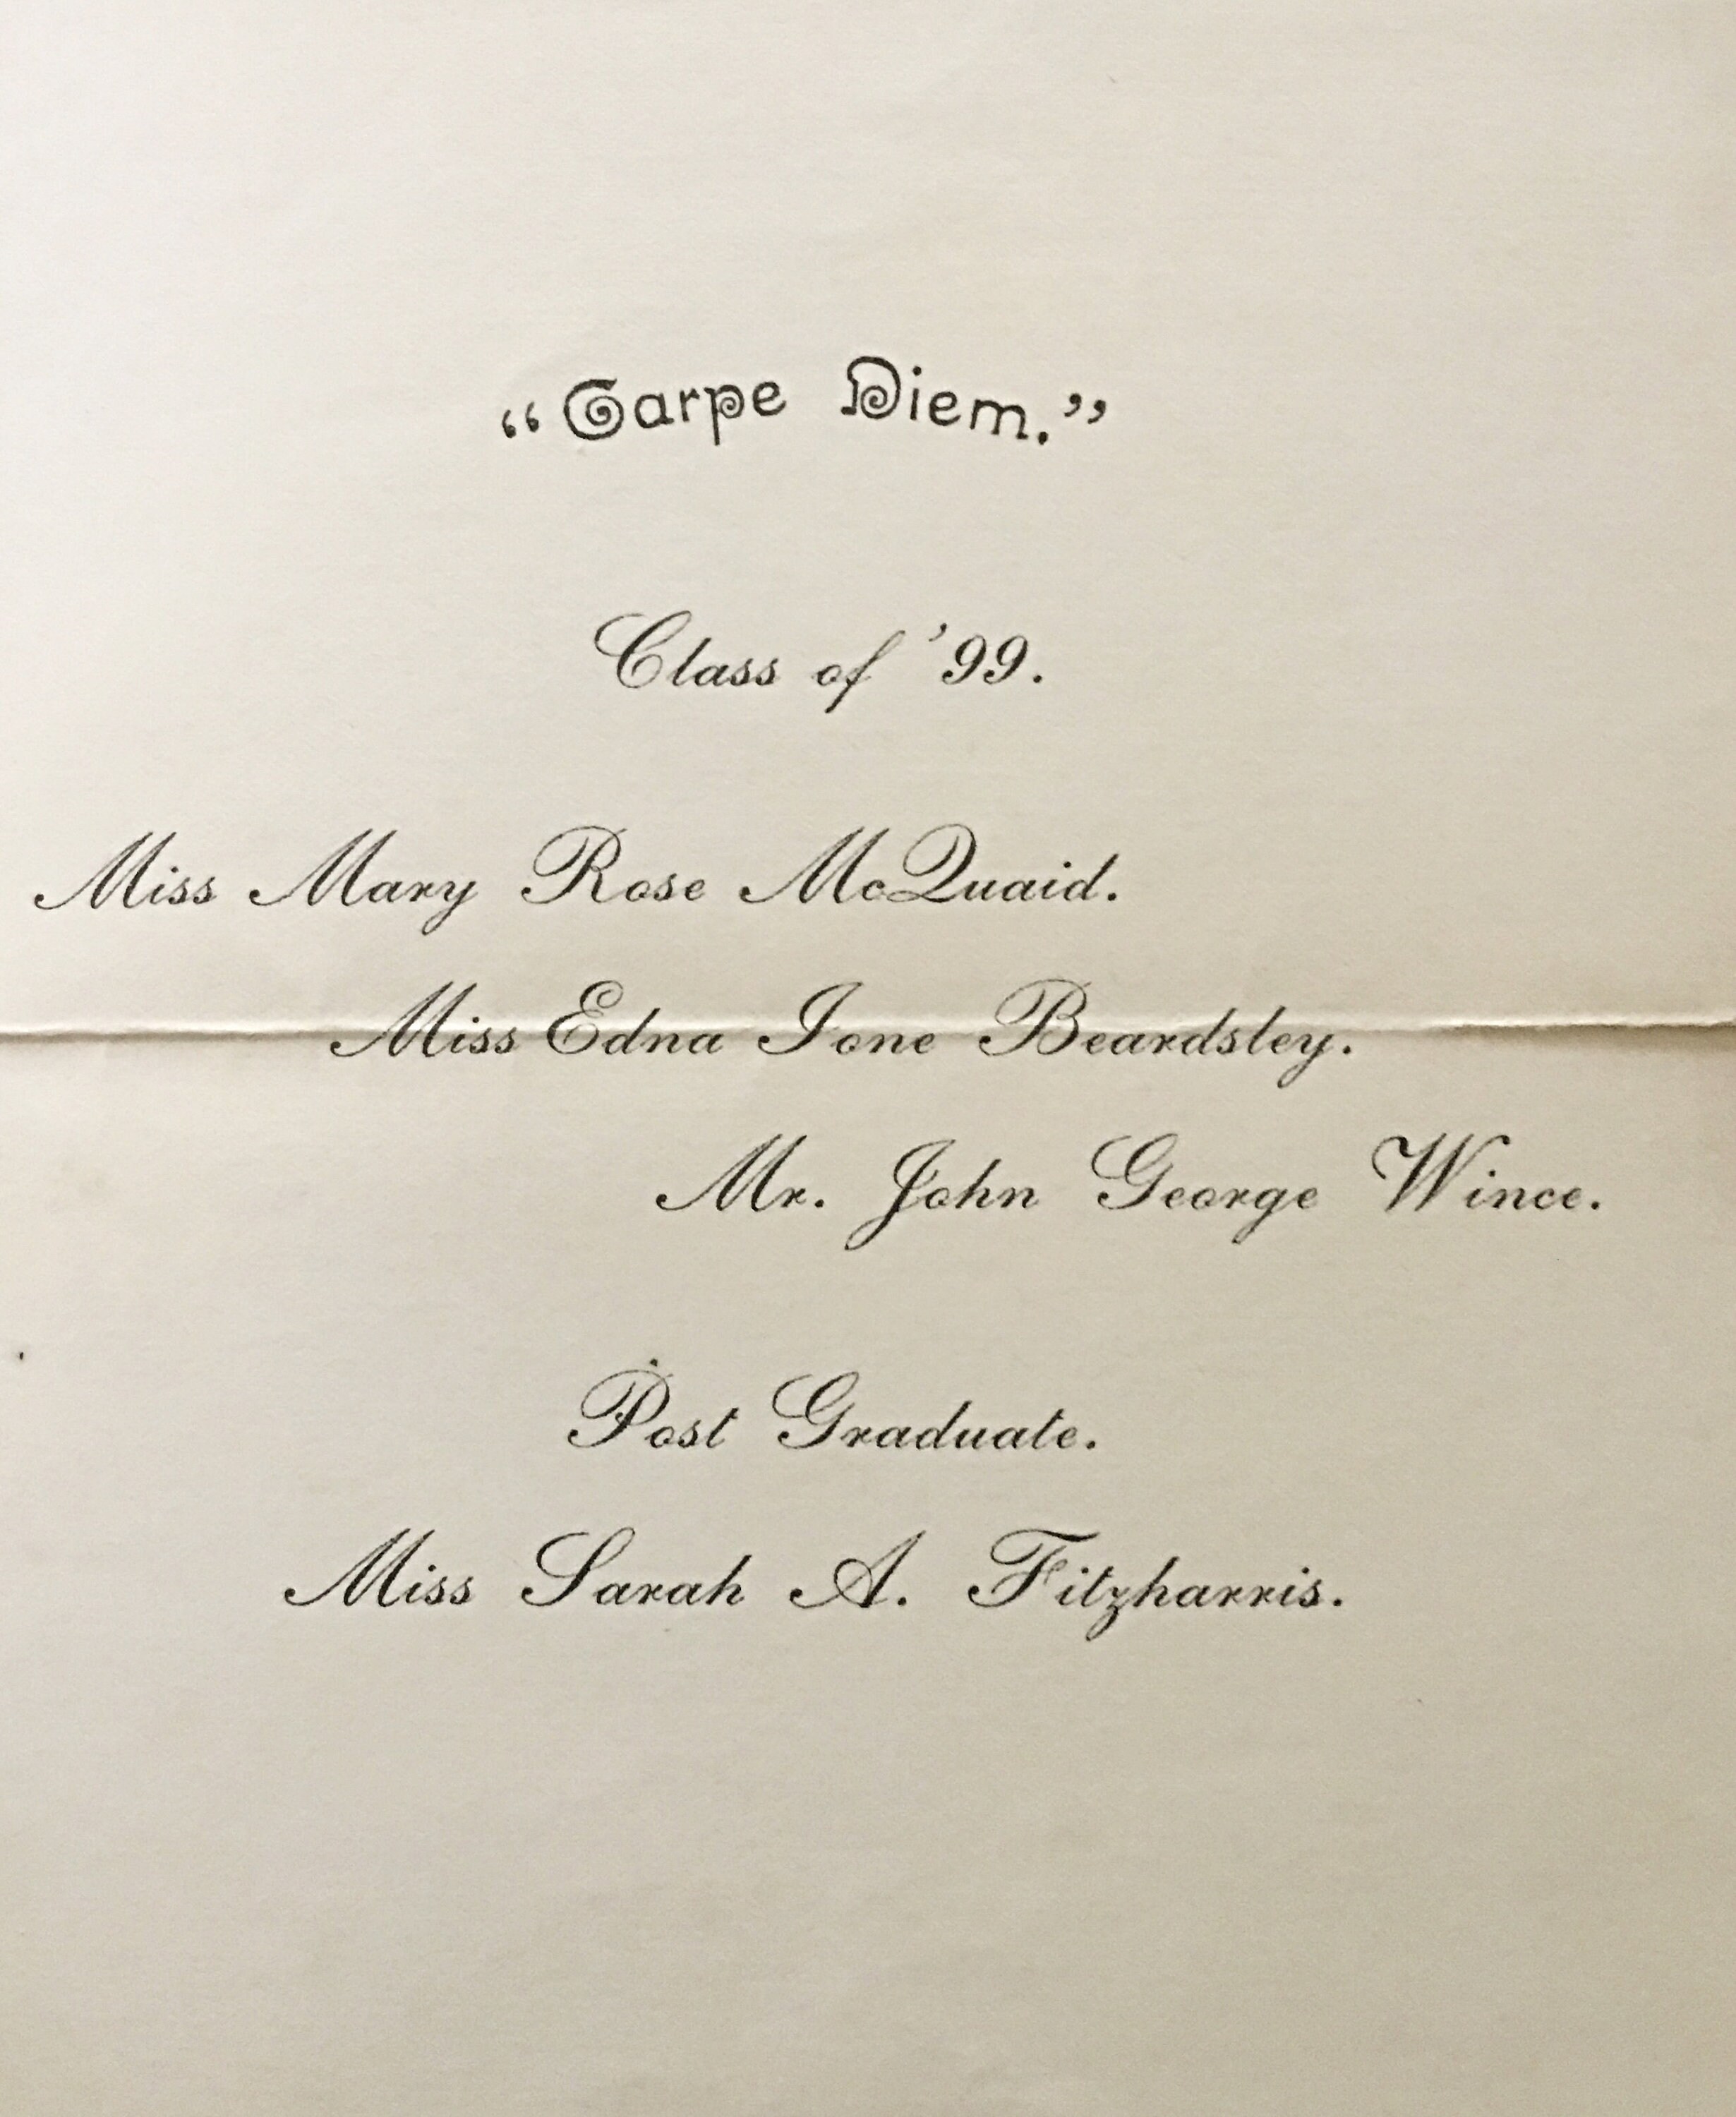 “Carpe Diem.”
Class of ’99.
Miss Mary Rose McQuaid.
Miss Edna Ione Beardsley.
Mr. John George Wince.
Post Graduate.
Miss Sarah A. Fitzharris.